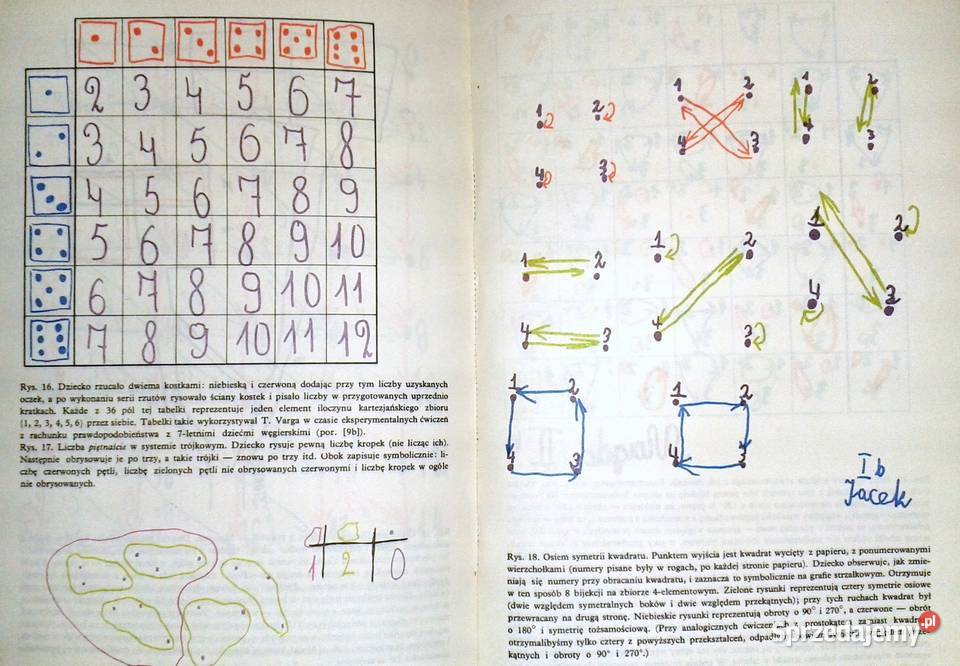 2 3 4 5 6 7
3 4 5 6 7 8
4 5 6 7 8 9
5 6 7 8 9 10
6 7 8 9 10 11
7 8 9 10 11 12
Rys. 16. Dziecko rzucało dwiema kostkami: niebieską i czerwoną dodając przy tym liczby uzyskanych
oczek, a po wykonaniu serii rzutów rysowało ściany kostek i pisało liczby w przygotowanych uprzednio
kratkach. Każde z 36 pól tej tabelki reprezentuje jeden element iloczynu kartezjańskiego zbioru
{1, 2, 3, 4, 5, 6} przez siebie. Tabelki takie wykorzystywał T. Varga w czasie eksperymentalnych ćwiczeń
z rachunku prawdopodobieństwa z 7-letnimi dziećmi węgierskimi (por. [9b]).
Rys. 17. Liczba piętnaście w systemie trójkowym. Dziecko rysuje pewną liczbę kropek (nie licząc ich).
Następnie obrysowuje je po trzy, a takie trójki — znowu po trzy itd. Obok zapisuje symbolicznie: li-
czbę czerwonych pętli, liczbę zielonych pętli nie obrysowanych czerwonymi i liczbę kropek w ogóle
nie obrysowanych.
1 2 0
1 2 1 2 1 2
4 3 4 3 4 3
1 2 1 2 1 2
4 3 4 3 4 3
1 2 1 2
4 3 4 3
I b
Jacek
Rys. 18. Osiem symetrii kwadratu. Punktem wyjścia jest kwadrat wycięty z papieru, z ponumerowanymi
wierzchołkami (numery pisane były w rogach, po każdej stronie papieru). Dziecko obserwuje, jak zmie-
niają się numery przy obracaniu kwadratu, i zaznacza to symbolicznie na grafie strzałkowym. Otrzymuje
w ten sposób 8 bijekcji na zbiorze 4-elementowym. Zielone rysunki reprezentują cztery symetrie osiowe
(dwie względem symetralnych boków i dwie względem przekątnych); przy tych ruchach kwadrat był
przewracany na drugą stronę. Niebieskie rysunki reprezentują obroty o 90° i 270°, a czerwone — obrót
o 180° i symetrię tożsamościową. (Przy analogicznych ćwiczeniach z prostokątem zamiast
otrzymalibyśmy tylko cztery z powyższych przekształceń,
kątnych i obroty o 90° i 270°.)
Sprzedajemy.pl